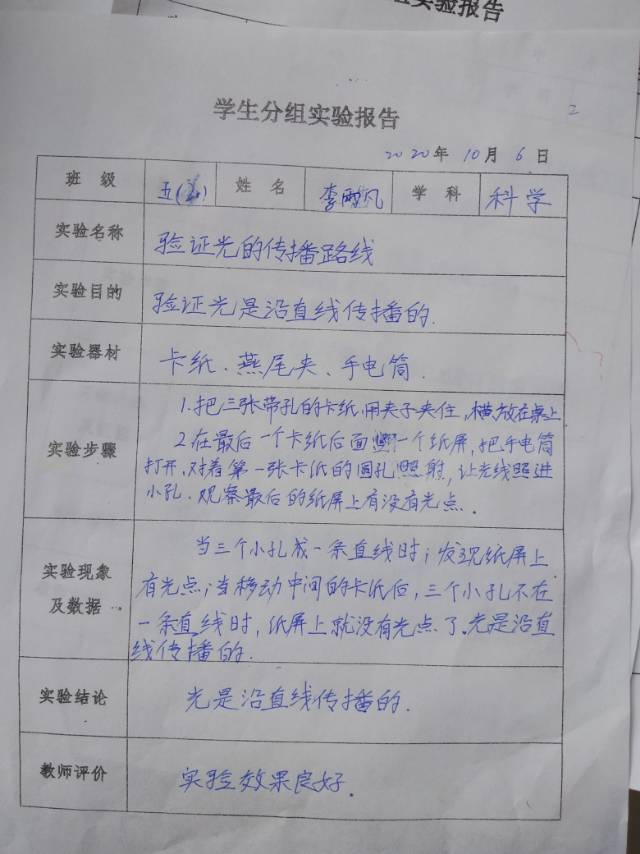 实验报告
学生分组实验报告
2
2020年 10月 6日
班 级 五( ) 姓 名 李 凡 学 科 科学
实验名称 验证光的传播路线
实验目的 验证光是沿直线传播的.
实验器材 卡纸、燕尾夹、手电筒.
实验步骤
1.把三张带孔的卡纸用夹子夹住,横放在桌上
2在最后一个卡纸后面 一个纸屏,把手电筒
打开,对着第一张卡纸的圆孔照射,让光线照进
小孔.观察最后的纸屏上有没有光点.
实验现象
及数据
当三个小孔成一条直线时;发现纸屏上
有光点;当移动中间的卡纸后,三个小孔不在
一条直线时,纸屏上就没有光点了.光是沿直
线传播的.
实验结论 光是沿直线传播的.
教师评价 实验效果良好.